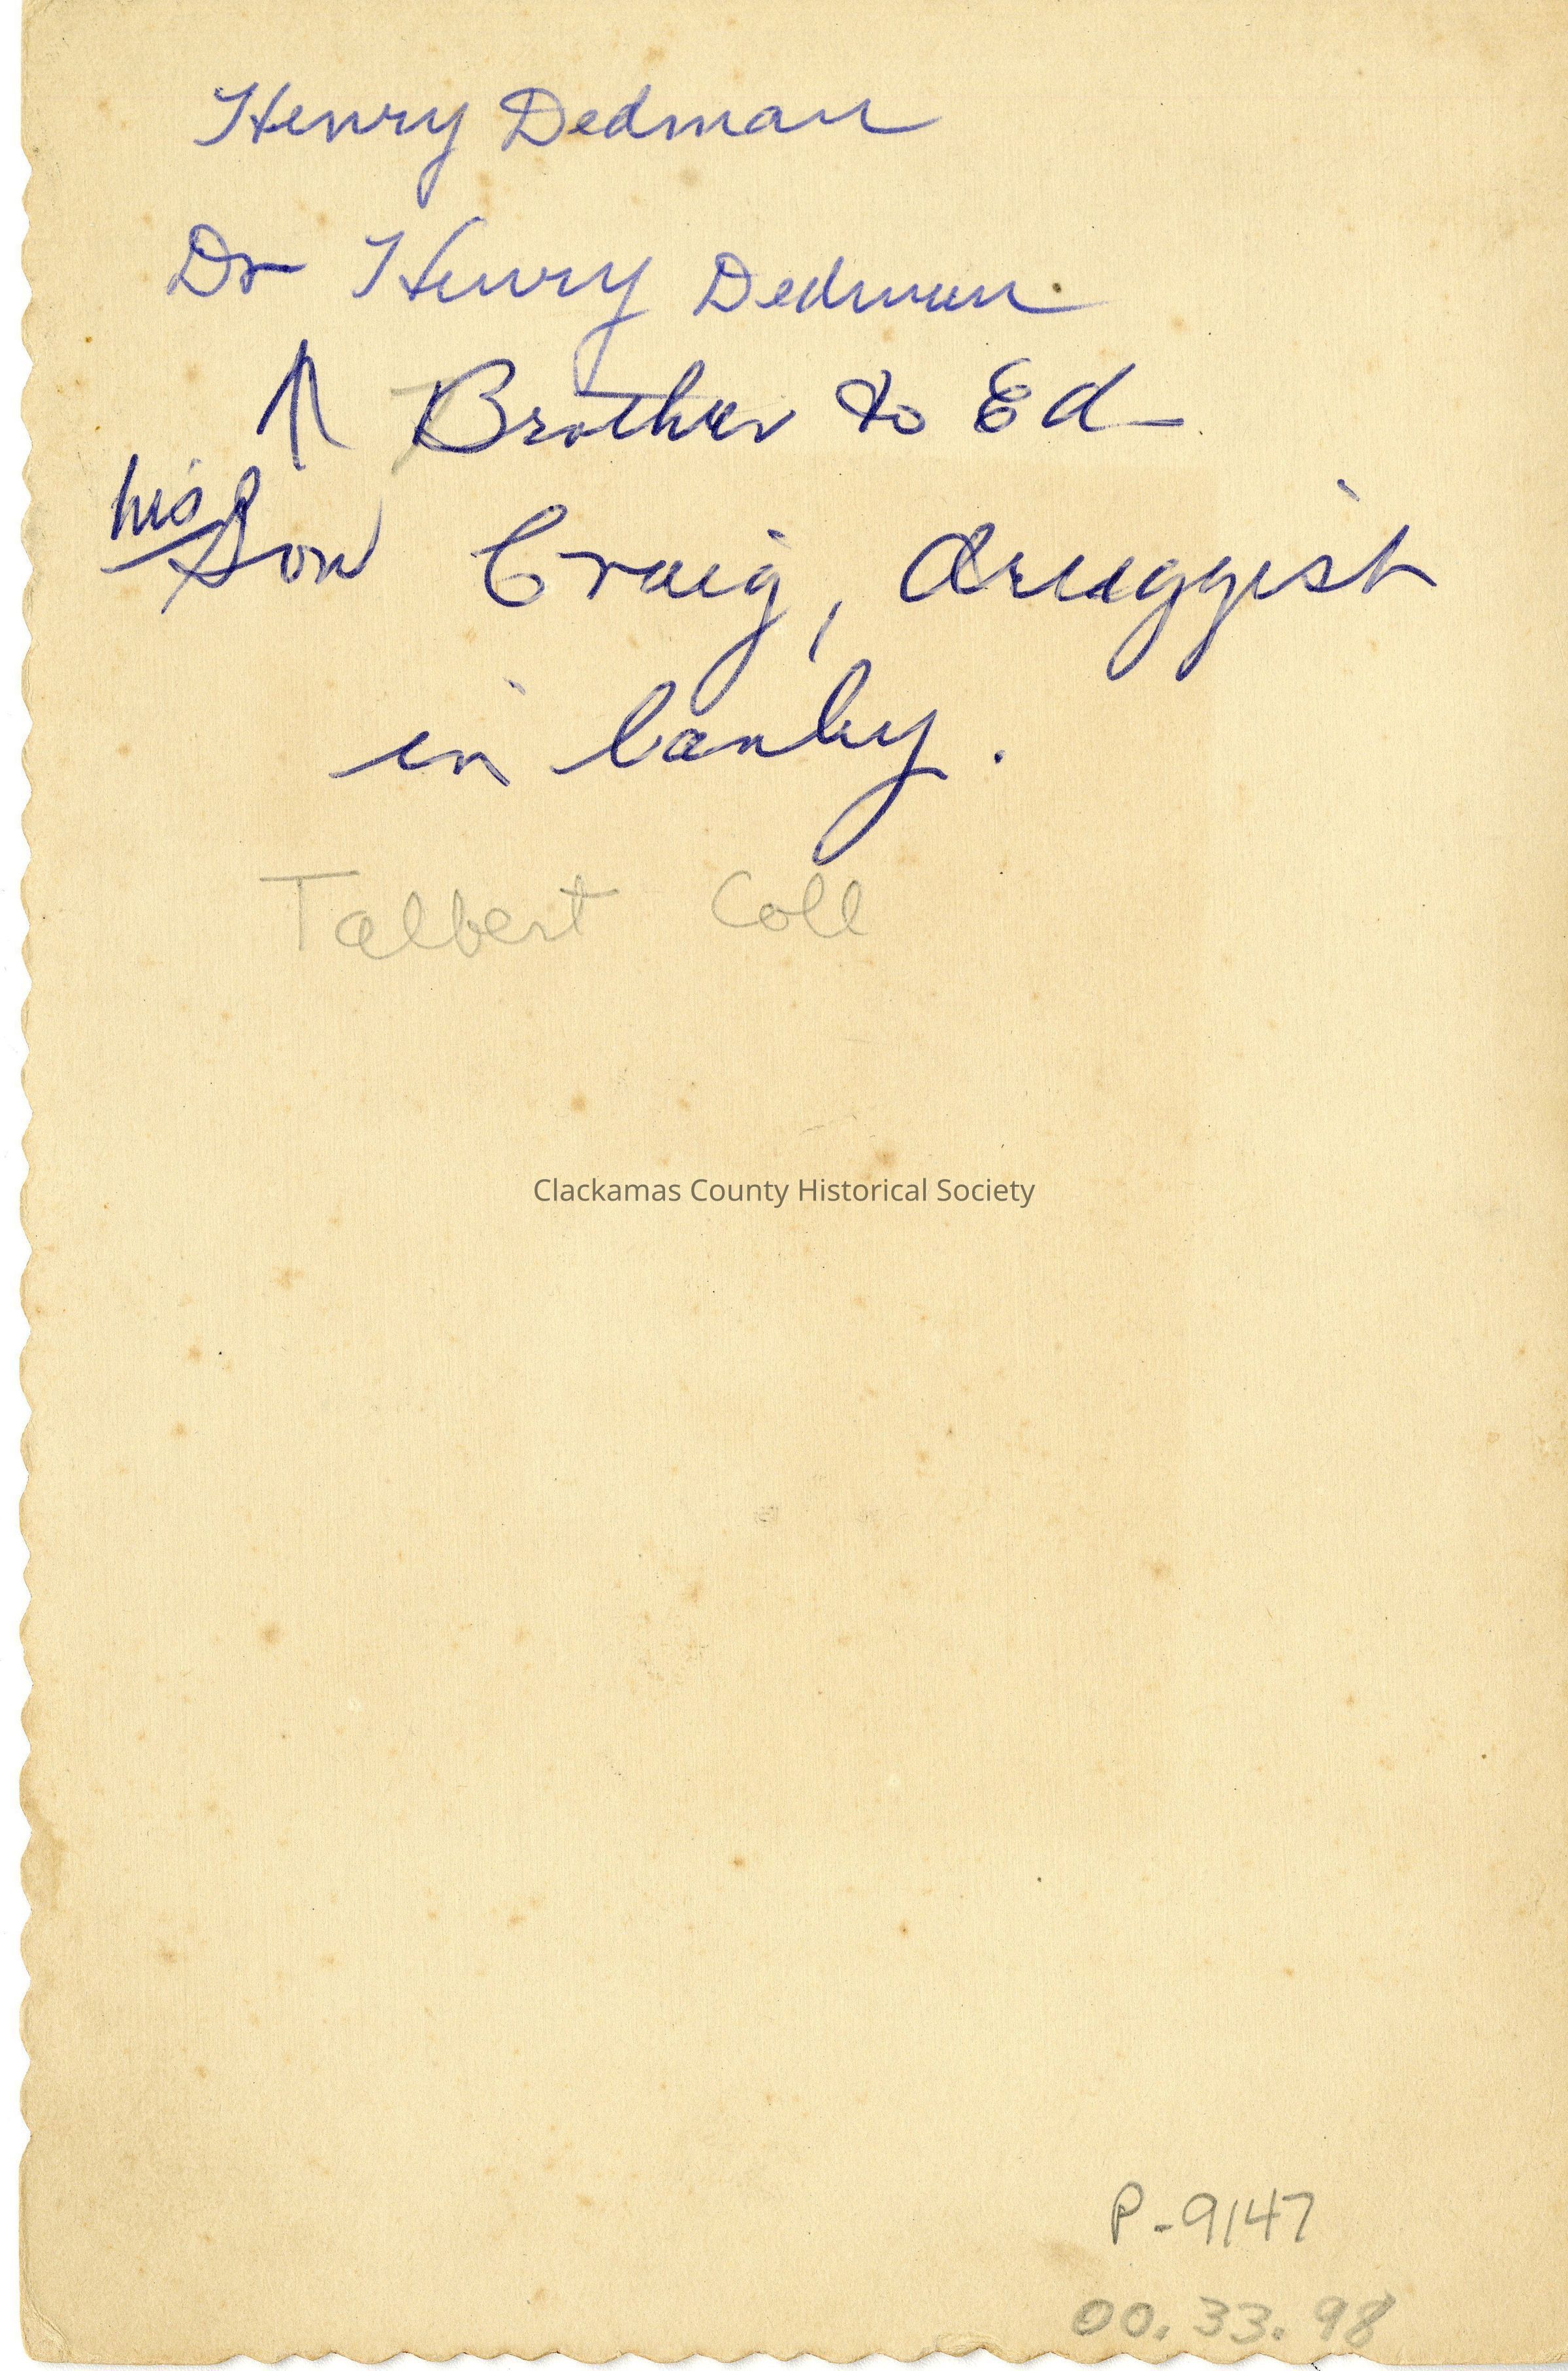 Henry Dedman
Dr Henry Dedman
↑ Brother to Ed
his Son Craig, druggist
in Canby.
Talbert Coll
Clackamas County Historical Society
P-9147
00.33.98